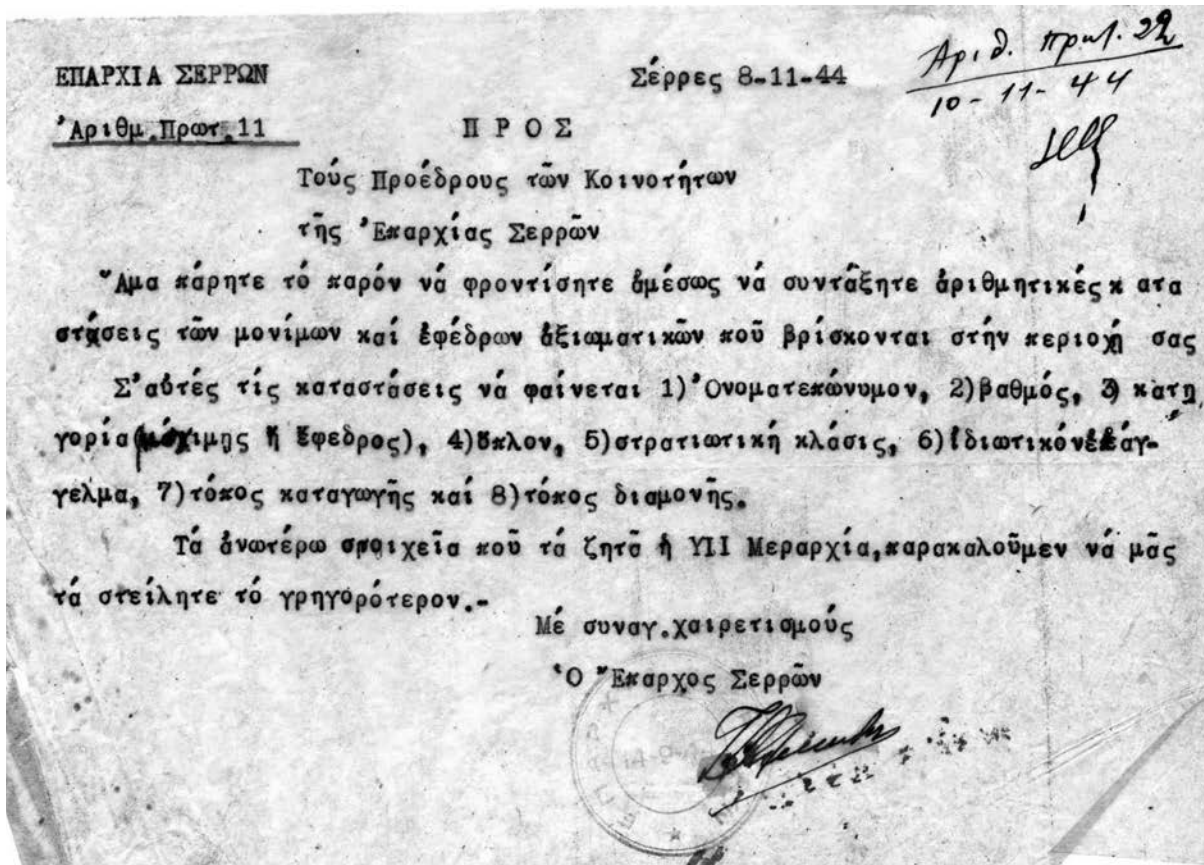 ΕΠΑΡΧΙΑ ΣΕΡΡΩΝ
Σέρρες 8-11-44
Ἀριθ. πρωτ. 22
10-11-44
Ἀριθμ.Πρωτ.11
Π Ρ Ο Σ
Τούς Προέδρους τῶν Κοινοτήτων
τῆς Ἐπαρχίας Σερρῶν
Ἅμα πάρητε τό παρόν νά φροντίσητε ἀμέσως νά συντάξητε ἀριθμητικές κ ατα
στάσεις τῶν μονίμων καί ἐφέδρων ἀξιωματικῶν ποῦ βρίσκονται στήν περιοχή σας
Σ'αὐτές τίς καταστάσεις νά φαίνεται 1)Ὀνοματεπώνυμον, 2)βαθμός, 3) κατη
γορία( ἤ ἔφεδρος), 4)ὅπλον, 5)στρατιωτική κλάσις, 6)ἰδιωτικόν ἐπάγ-
γελμα, 7)τόπος καταγωγῆς καί 8)τόπος διαμονῆς.
Τά ἀνωτέρω στοιχεῖα ποῦ τά ζητᾶ ἡ ΥΙΙ Μεραρχία,παρακαλοῦμεν νά μᾶς
τά στείλητε τό γρηγορότερον.-
Μέ συναγ.χαιρετισμούς
Ὁ Ἔπαρχος Σερρῶν